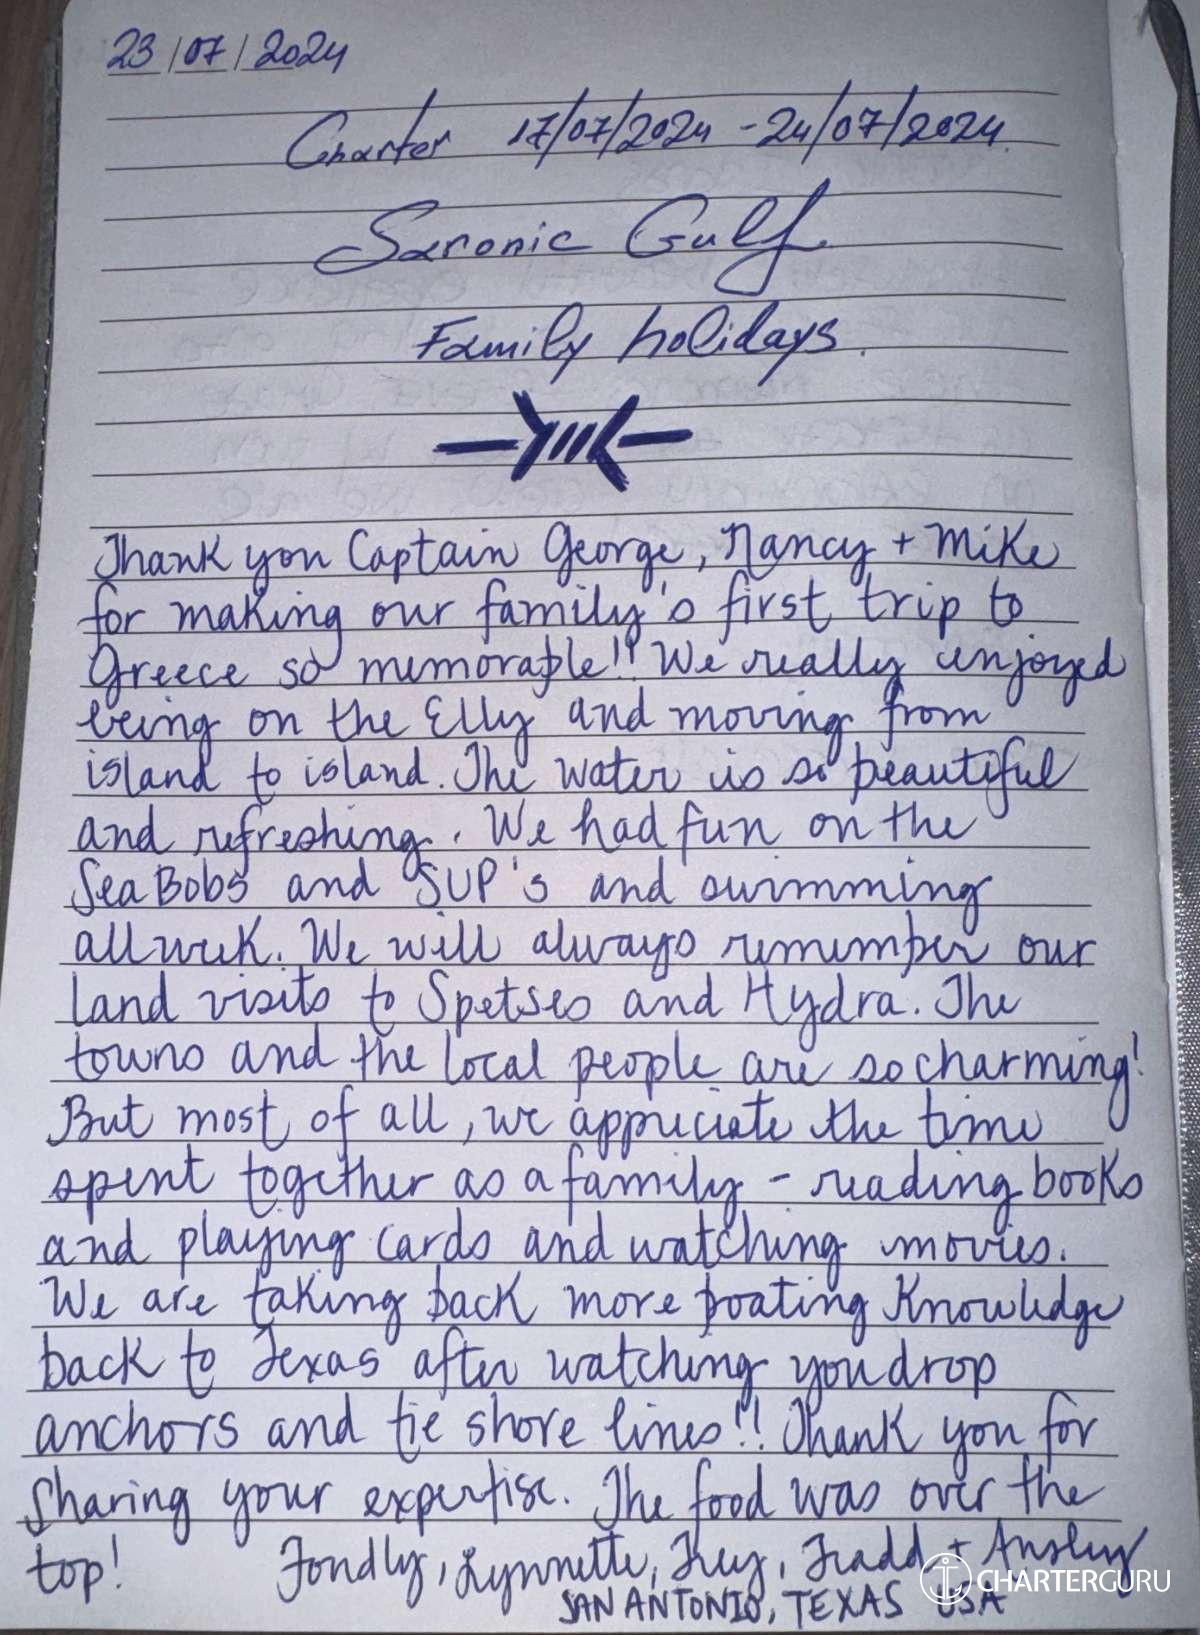 23/07/2024
Charter 17/07/2024 - 24/07/2024.
Saronic Gulf.
Family holidays.
Thank you Captain George, Nancy + Mike
for making our family's first trip to
Greece so memorable!! We really enjoyed
being on the Elly and moving from
island to island. The water is so beautiful
and refreshing. We had fun on the
SeaBobs and SUP's and swimming
all week. We will always remember our
land visits to Spetses and Hydra. The
towns and the local people are so charming!
But most of all, we appreciate the time
spent together as a family - reading books
and playing cards and watching movies.
We are taking back more boating Knowledge
back to Texas after watching you drop
anchors and tie shore lines!! Thank you for
Sharing your expertise. The food was over the
top! Fondly, Lynnette, Trey, Tradd, + Ansley
SAN ANTONIO, TEXAS USA
CHARTERGURU